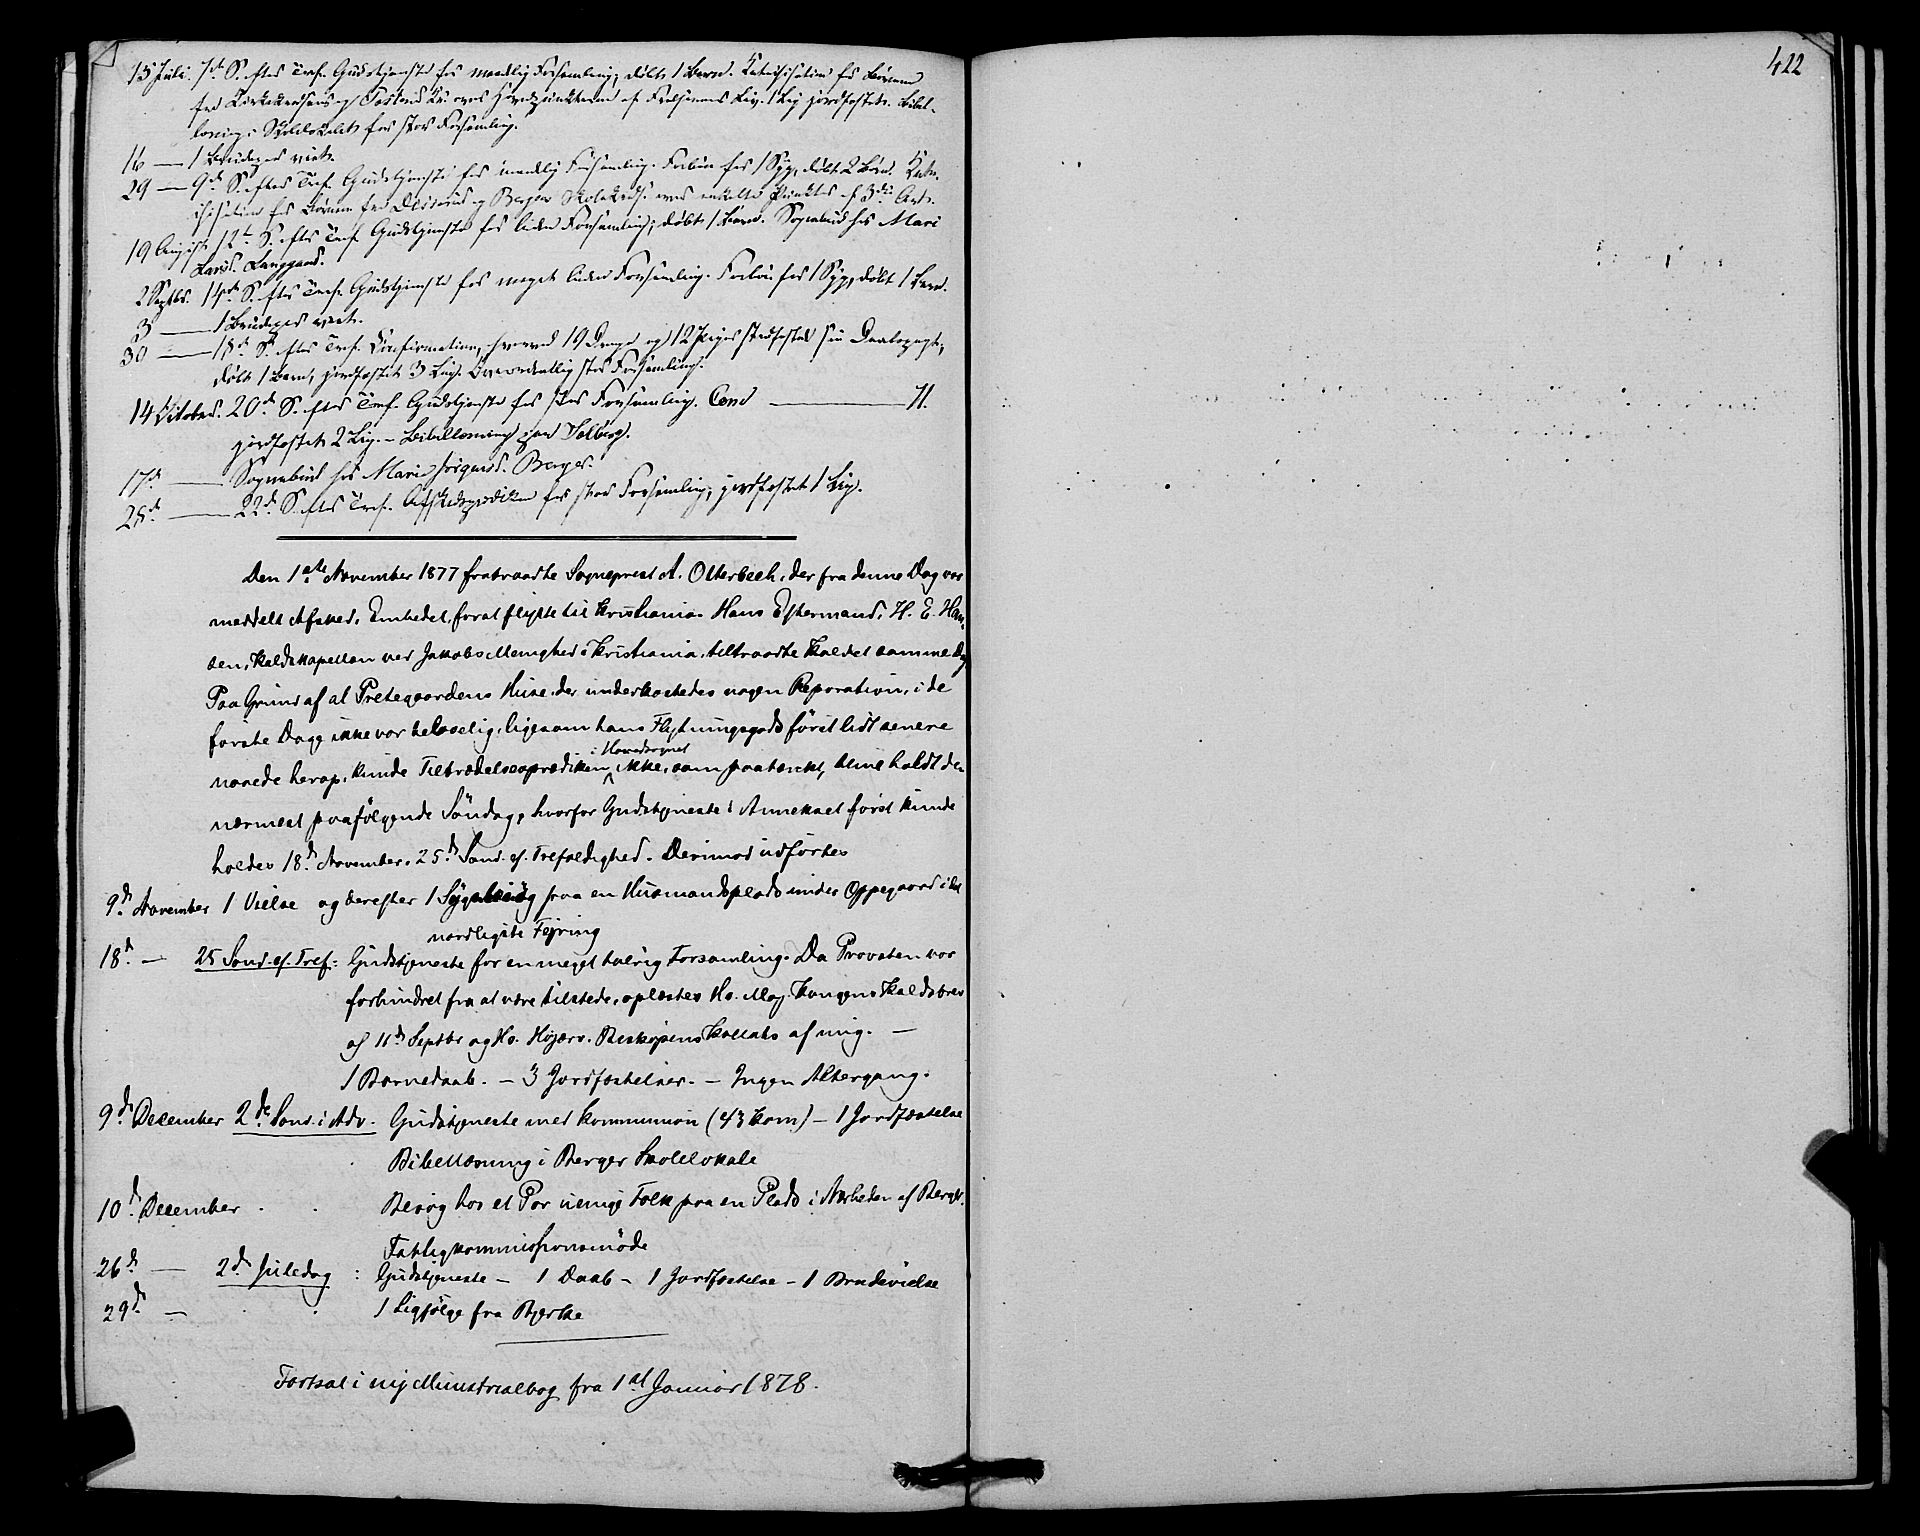 15 Juli. 7de S. efter Tref. Gudstjeneste for maadelig Forsamling; døbt 1 Barn. Katechisation for Børnene
fra Kirkekredsens og Kr. over Hovedpunkterne af Frelserens Liv. 1 Lig jordfæstet. Bibel-
læsning i Skolelokalet for stor Forsamling.
16 — 1 Brudepar viet.
29 — 9de S. efter Tref. Gudstjeneste for maadelig Forsamling. Forbøn for 1 Syg, døbt 2 Børn. Kate-
chisation for Børnene fra og Berger Skolekreds. over enkelte Punkter af 3die Art.
19 August 12te S. efter Tref. Gudstjeneste for liden Forsamling; døbt 1 Barn. Sognebud hos Mari
Larsd. Langgaard.
2 Septbr. 14de S. efter Tref. Gudstjeneste for meget liden Forsamling. Forbøn for 1 Syg, døbt 1 Barn.
3 — 1 Brudepar viet.
30 — 18de S. efter Tref. Confirmation, hvorved 19 Drenge og 12 Piger stadfæstede sin Daabspagt;
døbt 1 Barn, jordfæstet 3 Lig. Overordentlig stor Forsamling.
14 October. 20de S. efter Tref. Gudstjeneste for stor Forsamling. Comd — 71.
jordfæstet 2 Lig. – Bibellæsning paa Solberg.
17de — Sognebud hos Marie Jørgensd. Berger.
28de — 22de S. efter Tref. Afskedsprædiken for stor Forsamling; jordfæstet 1 Lig.
Den 1ste November 1877 fratraadte Sogneprest A. Otterbech, der fra denne Dag var
meddelt Afsked, Embedet, forat flytte til Kristiania. Hans Eftermand, H. E. Han-
sen, Kaldskapellan ved Jakobs Menighed i Kristiania, tiltraadte Kaldet samme Dag
Paa Grund af at Prestegaardens Huse, der underkastedes nogen Reparation, i de
første Dage ikke var beboelig, ligesom hans Flytningsgods først lidt senere
naaede herop, kunde Tiltrædelsesprædiken i Hovedsognet ikke, som paatænkt, blive holdt den
nærmest paafølgende Söndag, hvorfor Gudstjeneste i Annekset först kunde
holdes 18d November, 25d Sönd. ef. Trefoldighed. Derimod udförtes
9d November 1 Vielse og derefter 1 Sygebesög paa en Husmandsplads under Oppegaard i det
nordligste Fejring
18d — 25 Sönd. ef. Tref: Gudstjeneste for en meget talrig Forsamling. Da Provsten var
forhindret fra at være tilstede, oplæstes Hs. Maj. Kongens Kaldsbrev
af 11d Septbr og Hs. Højærv. Biskopens Kollats af mig. —
1 Barnedaab. – 3 Jordfæstelser. – Ingen Altergang.
9d December 2d Sönd. i Adv. Gudstjeneste med Kommunion (43 Kom.) – 1 Jordfæstelse
Bibellæsning i Berger Skolelokale
10d December Besög hos et Par uenige Folk paa en Plads i Nærheden af Berger.
Fattigkommissionsmöde
26d — 2d Juledag : Gudstjeneste – 1 Daab – 1 Jordfæstelse – 1 Brudevielse
29d — 1 Ligfölge fra Bjerke
Fortsat i ny Ministrialbog fra 1st Januar 1878.
422